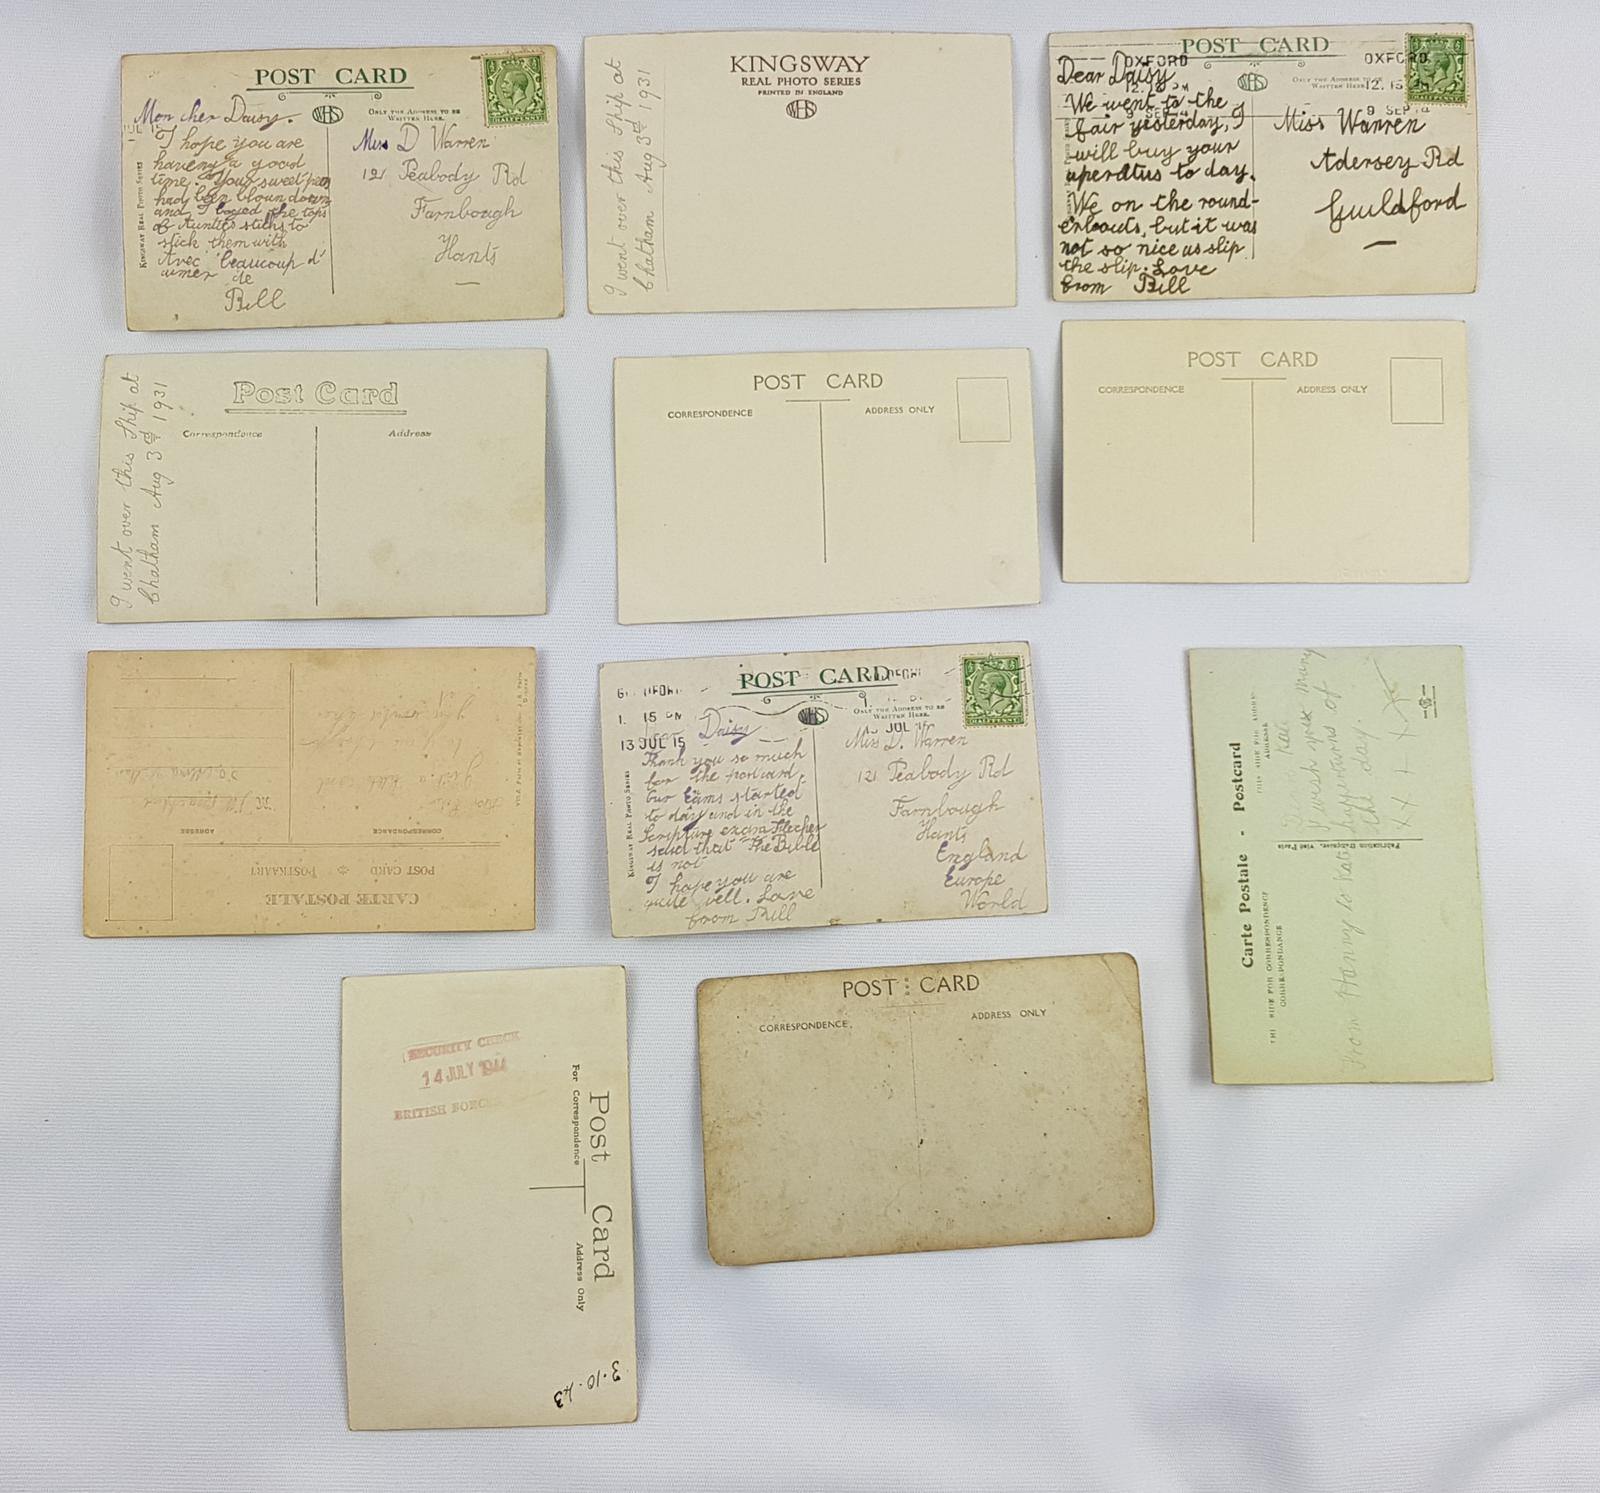 POST CARD
Mon cher Daisy.
WHS
ONLY THE ADDRESS TO BE
WRITTEN HERE.
HALFPENNY
KINGSWAY REAL PHOTO SERIES
I hope you are
haveny a good
time. Your sweet peas
had been bloun down
and I boged the tops
of Aunties sticks to
stick them with
Avec beaucoup d'
aimer de
Bill
Miss D Warren
121 Peabody Rd
Farnbough
Hants
I went over this Ship at
Chatham Aug 3rd 1931
KINGSWAY
REAL PHOTO SERIES
PRINTED IN ENGLAND
WHS
POST CARD
OXFORD
OXFORD
12.15
9 SEP 14
9 SEP 14
WHS
ONLY THE ADDRESS TO BE
WRITTEN HERE.
HALFPENNY
Dear Daisy
We went to the
fair yesterday, I
will buy your
aperatus to day.
We on the round-
erbouts, but it was
not so nice as slip
the slip. Love
from Bill
Miss Warren
Adersey Rd
Guildford
I went over this Ship at
Chatham Aug 3rd 1931
Post Card
Correspondence
Address
POST CARD
CORRESPONDENCE
ADDRESS ONLY
POST CARD
CORRESPONDENCE
ADDRESS ONLY
CARTE POSTALE
POST CARD
POSTKAART
CORRESPONDANCE
ADRESSE
POST CARD
1. 15 PM
13 JUL 15
JUL 15
WHS
ONLY THE ADDRESS TO BE
WRITTEN HERE.
HALFPENNY
KINGSWAY REAL PHOTO SERIES
Daisy
Thank you so much
for the postcard.
Our Exams started
to day and in the
Scripture exam Flecher
said that The Bible
is not
I hope you are
quite well. Love
from Bill
Miss D. Warren
121 Peabody Rd
Farnbough
Hants
England
Europe
World
Carte Postale - Postcard
THE SIDE FOR CORRESPONDENCE
CORRESPONDANCE
THIS SIDE FOR ADDRESS
ADRESSE
I wish you many
happy returns of
the day
From Hanny to Katie
Post Card
For Correspondence
Address Only
SECURITY CHECK
14 JULY 1944
BRITISH
3.10.43
POST CARD
CORRESPONDENCE.
ADDRESS ONLY